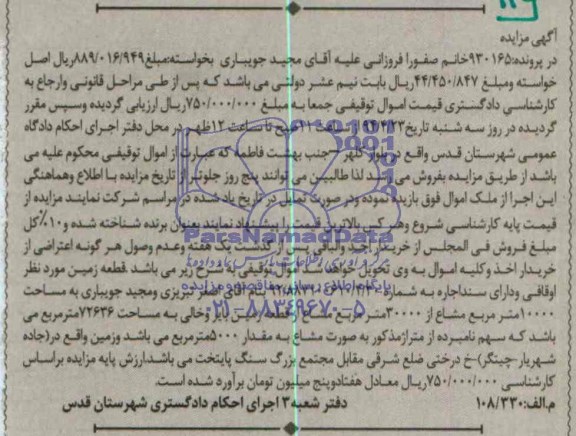 آگهی مزایده
در پرونده:۹۳۰۱۶۵خانم صفورا فروزانی علیه آقای مجید جویباری بخواسته:مبلغ۸۸۹/۰۱۶/۹۴۹ریال اصل
خواسته ومبلغ ۴۴/۴۵۰/۸۴۷ریال بابت نیم عشر دولتی می باشد که پس از طی مراحل قانونی وارجاع به
کارشناسی دادگستری قیمت اموال توقیفی جمعا به مبلغ ۷۵۰/۰۰۰/۰۰۰ریال ارزیابی گردیده وسپس مقرر
گردیده در روز سه شنبه تاریخ ۹۴/۴/۲۳ از ساعت صبح تا ساعت ۱۲ظهر در محل دفتر اجرای احکام دادگاه
عمومی شهرستان قدس واقع در بلوار کلهر جنب بهشت فاطمه که عبارت از اموال توقیفی محکوم علیه می
باشد از طریق مزایده بفروش می رسد لذا طالبین می توانند پنج روز جلوتر از تاریخ مزایده با اطلاع وهماهنگی
این اجرا از ملک اموال فوق بازدید نموده ودر صورت تمایل در تاریخ یاد شده در مراسم شرکت نمایند.مزایده از
قیمت پایه کارشناسی شروع وهر کس بالاترین قیمت را پیشنهاد نمایند بعنوان برنده شناخته شده و۱۰٪کل
مبلغ فروش فی المجلس از خریدار اخذ والباقی پس از گذشت یک هفته وعدم وصول هر گونه اعتراضی از
خریدار اخذ وکلیه اموال به وی تحویل خواهد شد اموال توقیفی به شرح زیر می باشد .قطعه زمین مورد نظر
اوقافی ودارای سنداجاره به شماره آقای اصغر تبریزی ومجید جویباری به مساحت
۱۰۰۰۰متر مربع مشاع از ۳۰۰۰۰متر مربع مشاع از قطعه زمین بایر وخالی به مساحت ۷۲۶۳۶مترمربع می
باشد که سهم نامبرده از متراژمذکور به صورت مشاع به مقدار ۵۰۰۰مترمربع می باشد وزمین واقع در(جاده
شهریار-چیتگر)-خ درختی ضلع شرقی مقابل مجتمع بزرگ سنگ پایتخت می باشد.ارزش پایه مزایده براساس
کارشناسی ۷۵۰/۰۰۰/۰۰۰ریال معادل هفتادوپنج میلیون تومان برآورد شده است.
م.الف:۱۰۸/۳۳۰ دفتر شعبه۳ اجرای احکام دادگستری شهرستان قدس
ParsNamadData
۰۲۱-۸۸۳۴۹۶۷۰-۵